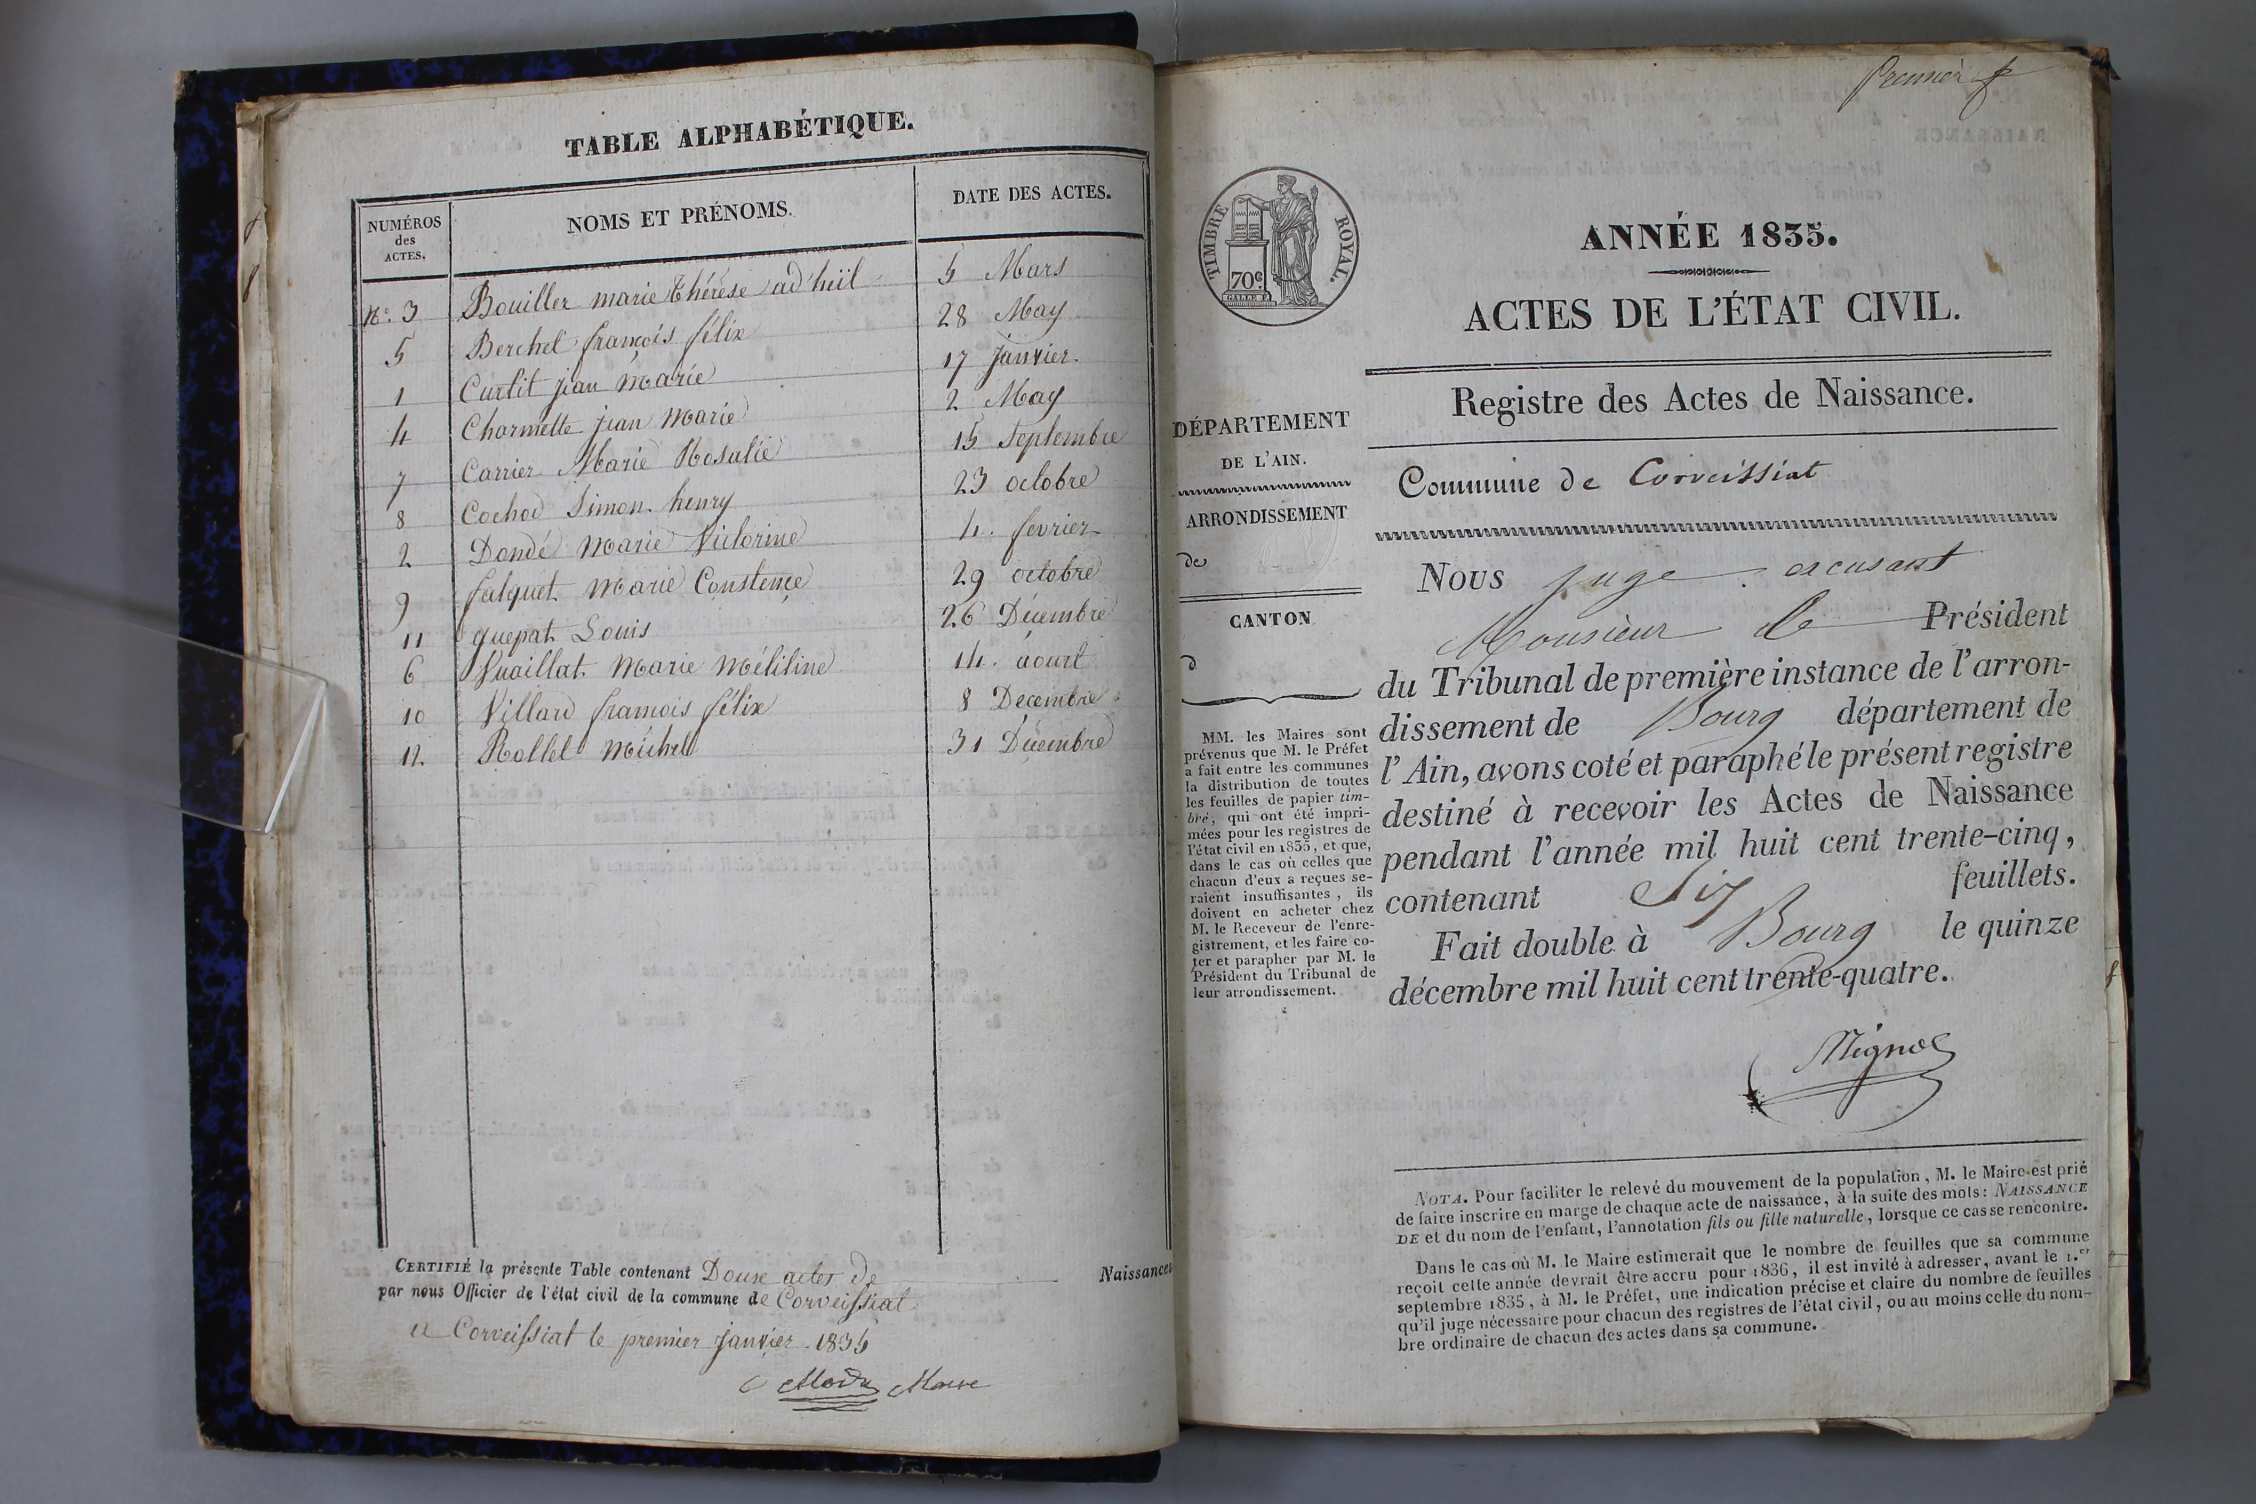 TABLE ALPHABÉTIQUE.
NUMÉROS
des
ACTES.
NOMS ET PRÉNOMS.
DATE DES ACTES.
N.° 3 Bouiller marie thérèse ad'heil 5 Mars
5 Berchet françois félix 28 May
1 Curtit jean marie 17 janvier
4 Charmette jean Marie 2 May
7 Carrier Marie Rosalie 15 septembre
8 Cochod Simon henry 23 octobre
2 Dondé Marie Victorine 4. fevrier
9 falquet Marie Constençe 29 octobre
11 guepat Louis 26 Décembre
6 Vuaillat Marie Mélitine 14. aourt
10 Villard framois félix 8 Decembre
12 Rollet Michel 31 Décembre
CERTIFIÉ la présente Table contenant Douze actes de Naissances
par nous Officier de l'état civil de la commune de Corveissiat
a Corveissiat le premier janvier 1835
Maire
Premier f
TIMBRE ROYAL.
70c
GALLE F.
ANNÉE 1835.
ACTES DE L'ÉTAT CIVIL.
Registre des Actes de Naissance.
DÉPARTEMENT
DE L'AIN.
ARRONDISSEMENT
de
CANTON
d
MM. les Maires sont
prévenus que M. le Préfet
a fait entre les communes
la distribution de toutes
les feuilles de papier tim-
bré, qui ont été impri-
mées pour les registres de
l'état civil en 1835, et que,
dans le cas où celles que
chacun d'eux a reçues se-
raient insuffisantes, ils
doivent en acheter chez
M. le Receveur de l'enre-
gistrement, et les faire co-
ter et parapher par M. le
Président du Tribunal de
leur arrondissement.
Commune de Corveissiat
Nous juge excusant
Monsieur le Président
du Tribunal de première instance de l'arron-
dissement de Bourg département de
l'Ain, avons coté et paraphé le présent registre
destiné à recevoir les Actes de Naissance
pendant l'année mil huit cent trente-cinq,
contenant Six feuillets.
Fait double à Bourg le quinze
décembre mil huit cent trente-quatre.
Mignot
NOTA. Pour faciliter le relevé du mouvement de la population, M. le Maire est prié
de faire inscrire en marge de chaque acte de naissance, à la suite des mots: NAISSANCE
DE et du nom de l'enfant, l'annotation fils ou fille naturelle, lorsque ce cas se rencontre.
Dans le cas où M. le Maire estimerait que le nombre de feuilles que sa commune
reçoit cette année devrait être accru pour 1836, il est invité à adresser, avant le 1.er
septembre 1835, à M. le Préfet, une indication précise et claire du nombre de feuilles
qu'il juge nécessaire pour chacun des registres de l'état civil, ou au moins celle du nom-
bre ordinaire de chacun des actes dans sa commune.